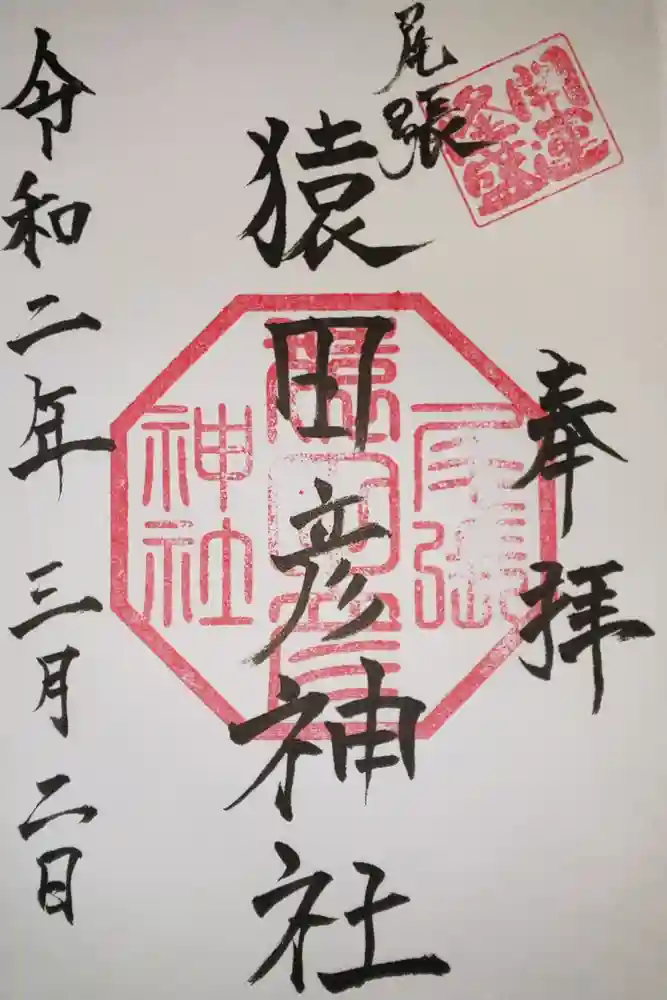 開運
隆盛
奉拝
尾張
猿田彦神社
尾張
猿田彦
神社
令和二年三月二日